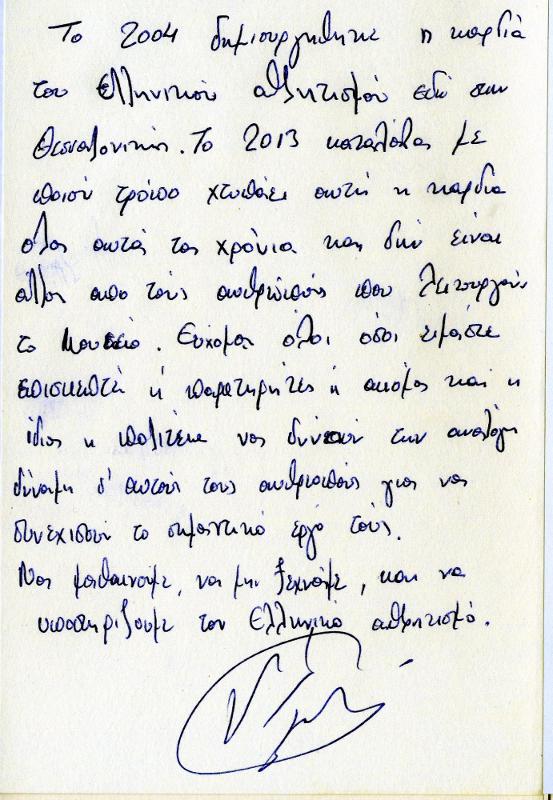 Το 2004 δημιουργήθηκε η καρδιά
του Ελληνικού αθλητισμού εδώ στην
Θεσσαλονίκη. Το 2013 κατάλαβα με
ποιον τρόπο χτυπάει αυτή η καρδια
όλα αυτά τα χρόνια και δεν είναι
άλλος απο τους ανθρώπους που λειτουργούν
το Μουσείο. Εύχομαι όλοι όσοι είμαστε
επισκεπτε ή παρατηρητές ή ακόμα και η
ίδια η πολιτεία να δίνουν την ανάλογη
δύναμη σ' αυτούς τους ανθρώπους για να
συνεχίσουν το σημαντικό έργο τους.
Να μαθαίνουμε, να μην ξεχνάμε, και να
υποστηρίζουμε τον Ελληνικό αθλητισμό.